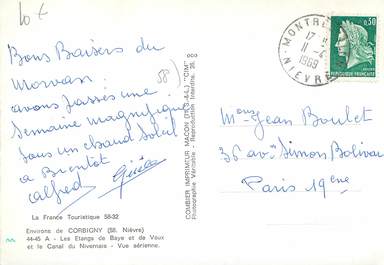 10 €
Bons Baisers du
Morvan. 58)
avons passés une
Semaine magnifique
sous un chaud soleil
a Bientôt
alfred
La France Touristique 58-32
Environs de CORBIGNY (58. Nièvre)
44-45 A - Les Etangs de Baye et de Vaux
et le Canal du Nivernais - Vue aérienne.
COMBIER IMPRIMEUR MACON (71-S.-&-L.) "CIM"
Photographie Véritable - Reproduction Interdite.
MONTRE
17
11
1969
NIEVRE
0,50
REPUBLIQUE FRANÇAISE
Mons Jean Boulet
36 av. Simon Bolivar
Paris 19ème